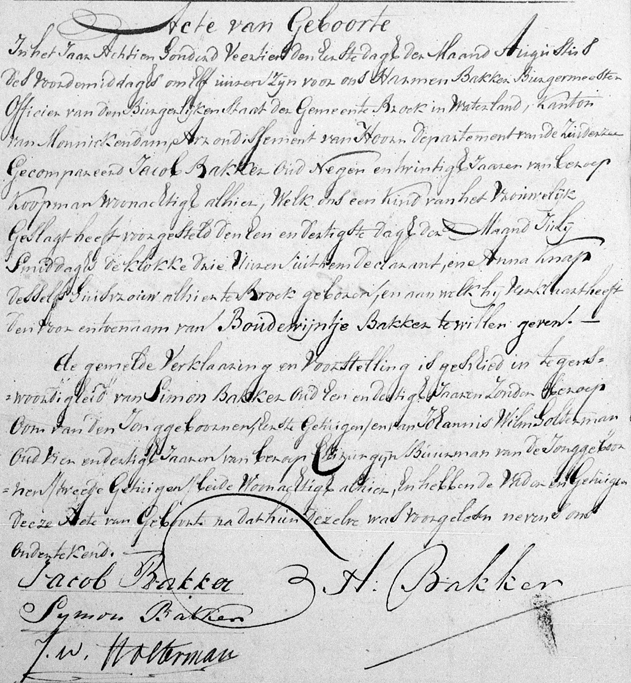 Acte van Geboorte
In het Jaar Achtien Honderd Veertien den Eerste dag der Maand Augustus
des Voordemiddags om Elf uuren Zyn voor ons Harmen Bakker Burgermeester
Officier van den Burgerlyken Staat der Gemeente Broek in Waterland, Kanton
van Monnickendam, Arrondissement van Hoorn Departement van de Zuiderzee
Gecompareerd Jacob Bakker Oud Negen en twintig Jaaren van beroep
Koopman Woonachtig alhier, Welk ons een Kind van het Vrouwelyk
Geslagt heeft voorgesteld den Een en dertigste dag der Maand July
Smiddags de klokke drie Uuren uit hem declarant, en Anna Knap
desselfs huisvrouw alhier te Broek geboren, en aan welk hy Verklaart heeft
den voor en toenaam van Boudewijntje Bakker te willen geven. —
de gemelde Verklaaring en Voorstelling is geschied in tegens=
=woordigheid van Simon Bakker Oud Een en dertig Jaaren Zonder Beroep
Oom van den Jonggeboornen Eerste Getuigen, en van Johannis Wilm Holterman
Oud Vier en dertig Jaaren van beroep Chirurgyn Buurman van de Jonggeboor
=nen, tweede Getuigen, beide Woonachtig alhier, En hebben de Vader en Getuigen
deeze Acte van Geboorte na dat hun dezelve was voorgelesen nevens ons
ondertekend. —
Jacob Bakker
H. Bakker
Symon Bakker
J. W. Holterman